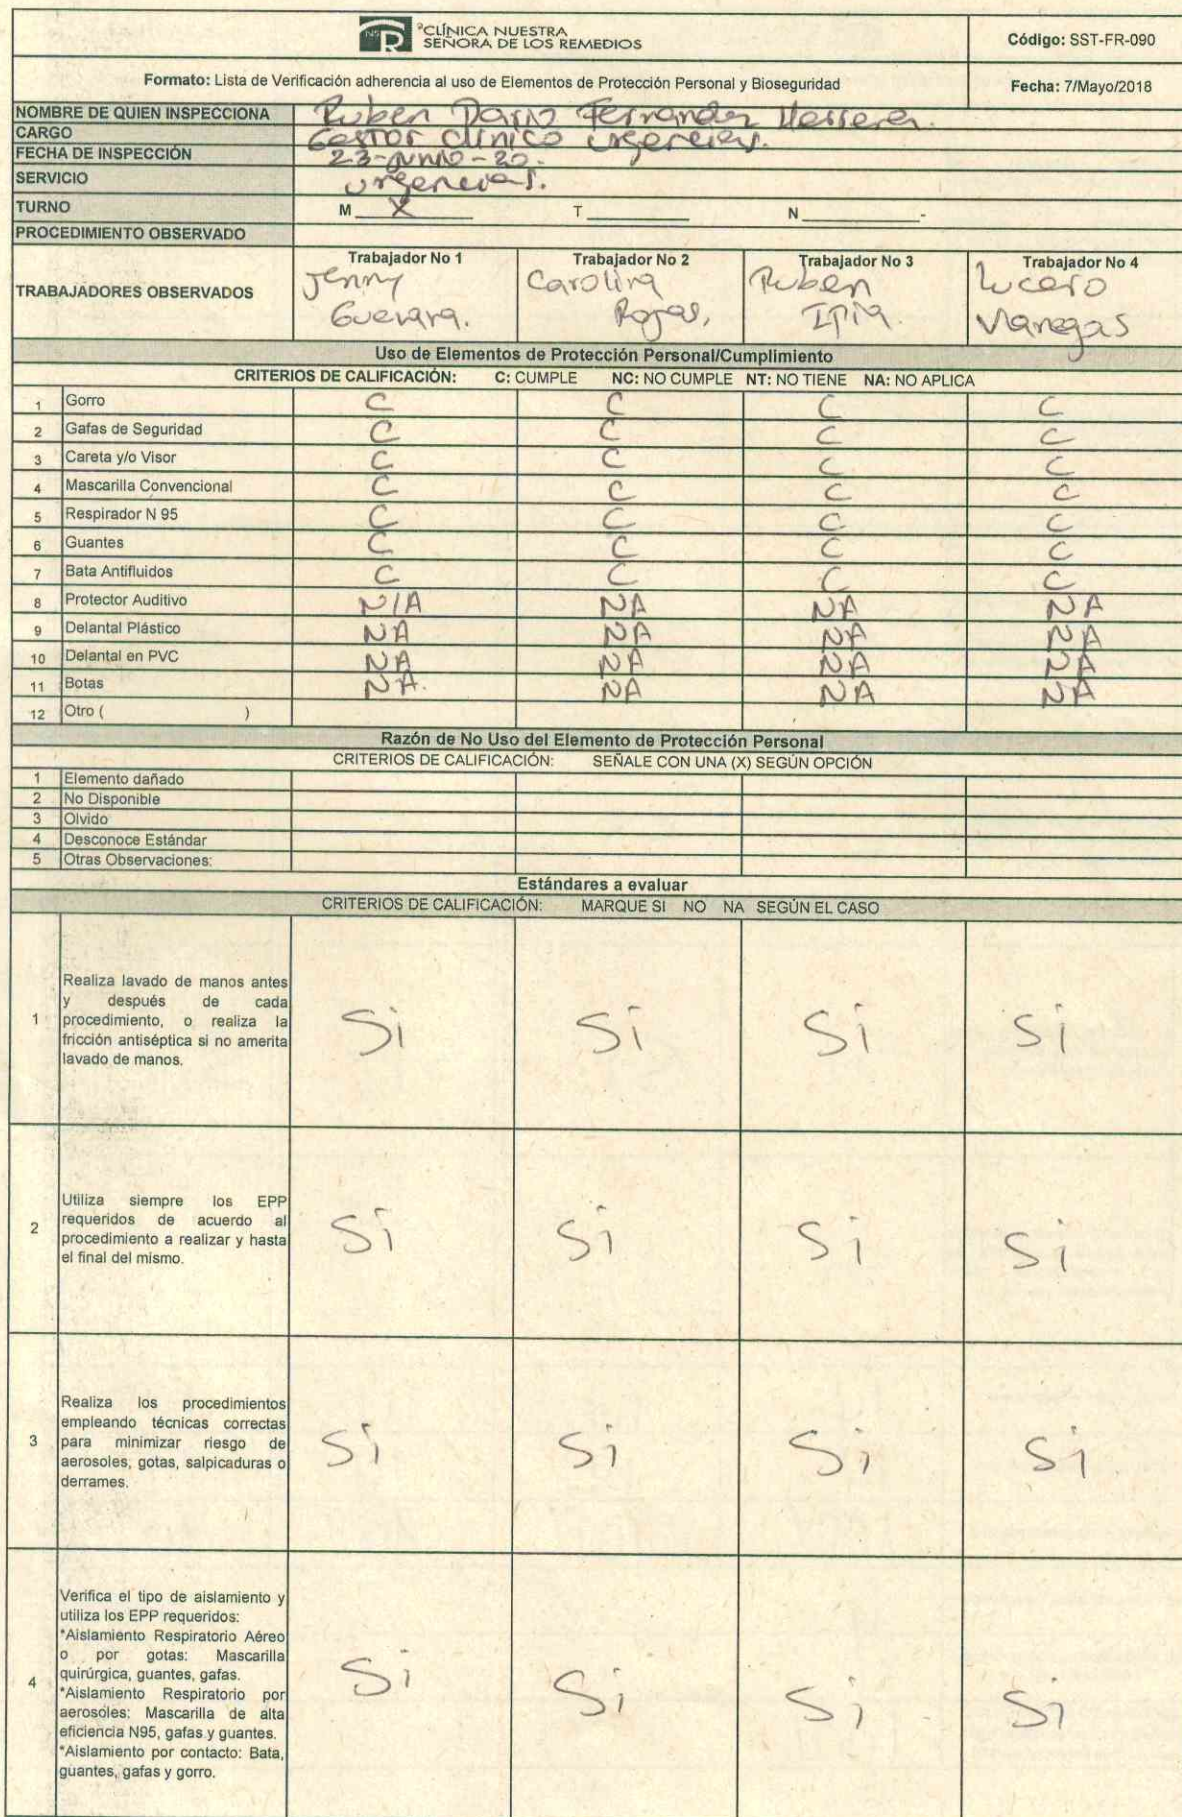 CLÍNICA NUESTRA
SEÑORA DE LOS REMEDIOS
Código: SST-FR-090
Formato: Lista de Verificación adherencia al uso de Elementos de Protección Personal y Bioseguridad
Fecha: 7/Mayo/2018
NOMBRE DE QUIEN INSPECCIONA Ruben Dario Fernandez Herrera.
CARGO Gestor clinico urgencias.
FECHA DE INSPECCIÓN 23-junio-20.
SERVICIO urgencias.
TURNO M X T N -
PROCEDIMIENTO OBSERVADO
Trabajador No 1 Trabajador No 2 Trabajador No 3 Trabajador No 4
TRABAJADORES OBSERVADOS
Jenny Carolina Ruben Lucero
Guevara. Rojas, Ipia. Vanegas
Uso de Elementos de Protección Personal/Cumplimiento
CRITERIOS DE CALIFICACIÓN: C: CUMPLE NC: NO CUMPLE NT: NO TIENE NA: NO APLICA
1 Gorro C C C C
2 Gafas de Seguridad C C C C
3 Careta y/o Visor C C C C
4 Mascarilla Convencional C C C C
5 Respirador N 95 C C C C
6 Guantes C C C C
7 Bata Antifluidos C C C C
8 Protector Auditivo N/A NA NA NA
9 Delantal Plástico NA NA NA NA
10 Delantal en PVC NA NA NA NA
11 Botas NA. NA NA NA
12 Otro ( )
Razón de No Uso del Elemento de Protección Personal
CRITERIOS DE CALIFICACIÓN: SEÑALE CON UNA (X) SEGÚN OPCIÓN
1 Elemento dañado
2 No Disponible
3 Olvido
4 Desconoce Estándar
5 Otras Observaciones:
Estándares a evaluar
CRITERIOS DE CALIFICACIÓN: MARQUE SI NO NA SEGÚN EL CASO
Realiza lavado de manos antes
y después de cada
1 procedimiento, o realiza la
fricción antiséptica si no amerita
lavado de manos.
Si Si Si Si
Utiliza siempre los EPP
requeridos de acuerdo al
2 procedimiento a realizar y hasta
el final del mismo.
Si Si Si Si
Realiza los procedimientos
empleando técnicas correctas
3 para minimizar riesgo de
aerosoles, gotas, salpicaduras o
derrames.
Si Si Si Si
Verifica el tipo de aislamiento y
utiliza los EPP requeridos:
*Aislamiento Respiratorio Aéreo
o por gotas: Mascarilla
quirúrgica, guantes, gafas.
4 *Aislamiento Respiratorio por
aerosoles: Mascarilla de alta
eficiencia N95, gafas y guantes.
*Aislamiento por contacto: Bata,
guantes, gafas y gorro.
Si Si Si Si